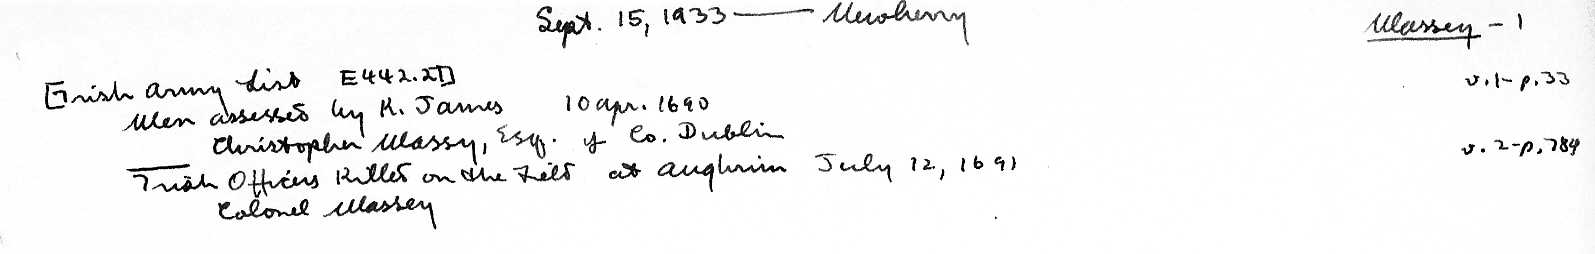 Sept. 15, 1933 — Newberry Massey - 1
Irish Army List E442.2D v.1- p.33
Men assessed by K. James 10 Apr. 1690
Christopher Massy, Esq. of Co. Dublin
Irish Officers Killed on the Field at Aughrim July 12, 1691 v.2-p.784
Colonel Massey